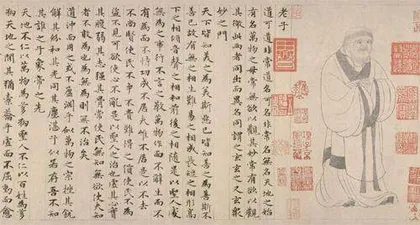 老子
道可道非常道名可名非常名無名天地之始
有名萬物之母常無欲以觀其妙常有欲以觀
其徼此兩者同出而異名同謂之玄玄之又玄衆
妙之門
天下皆知美之為美斯惡已皆知善之為善斯不
善已故有無之相生難易之相成長短之相形高
下之相傾音聲之相和前後之相隨是以聖人處
無為之事行不言之教萬物作而不辭生而不
有為而不恃功成不居夫惟不居是以不去
不尚賢使民不爭不貴難得之貨使民不為
盜不見可欲使心不亂是以聖人之治也虛其心實
其腹弱其志強其骨常使民無知無欲使夫知
者不敢為也為無為則無不治矣
道沖而用之或不盈淵乎似萬物之宗挫其銳
解其紛和其光同其塵湛兮似若存吾不知
其誰之子象帝之先
天地不仁以萬物為芻狗聖人不仁以百姓為芻
狗天地之間其猶橐籥乎虛而不屈動而愈